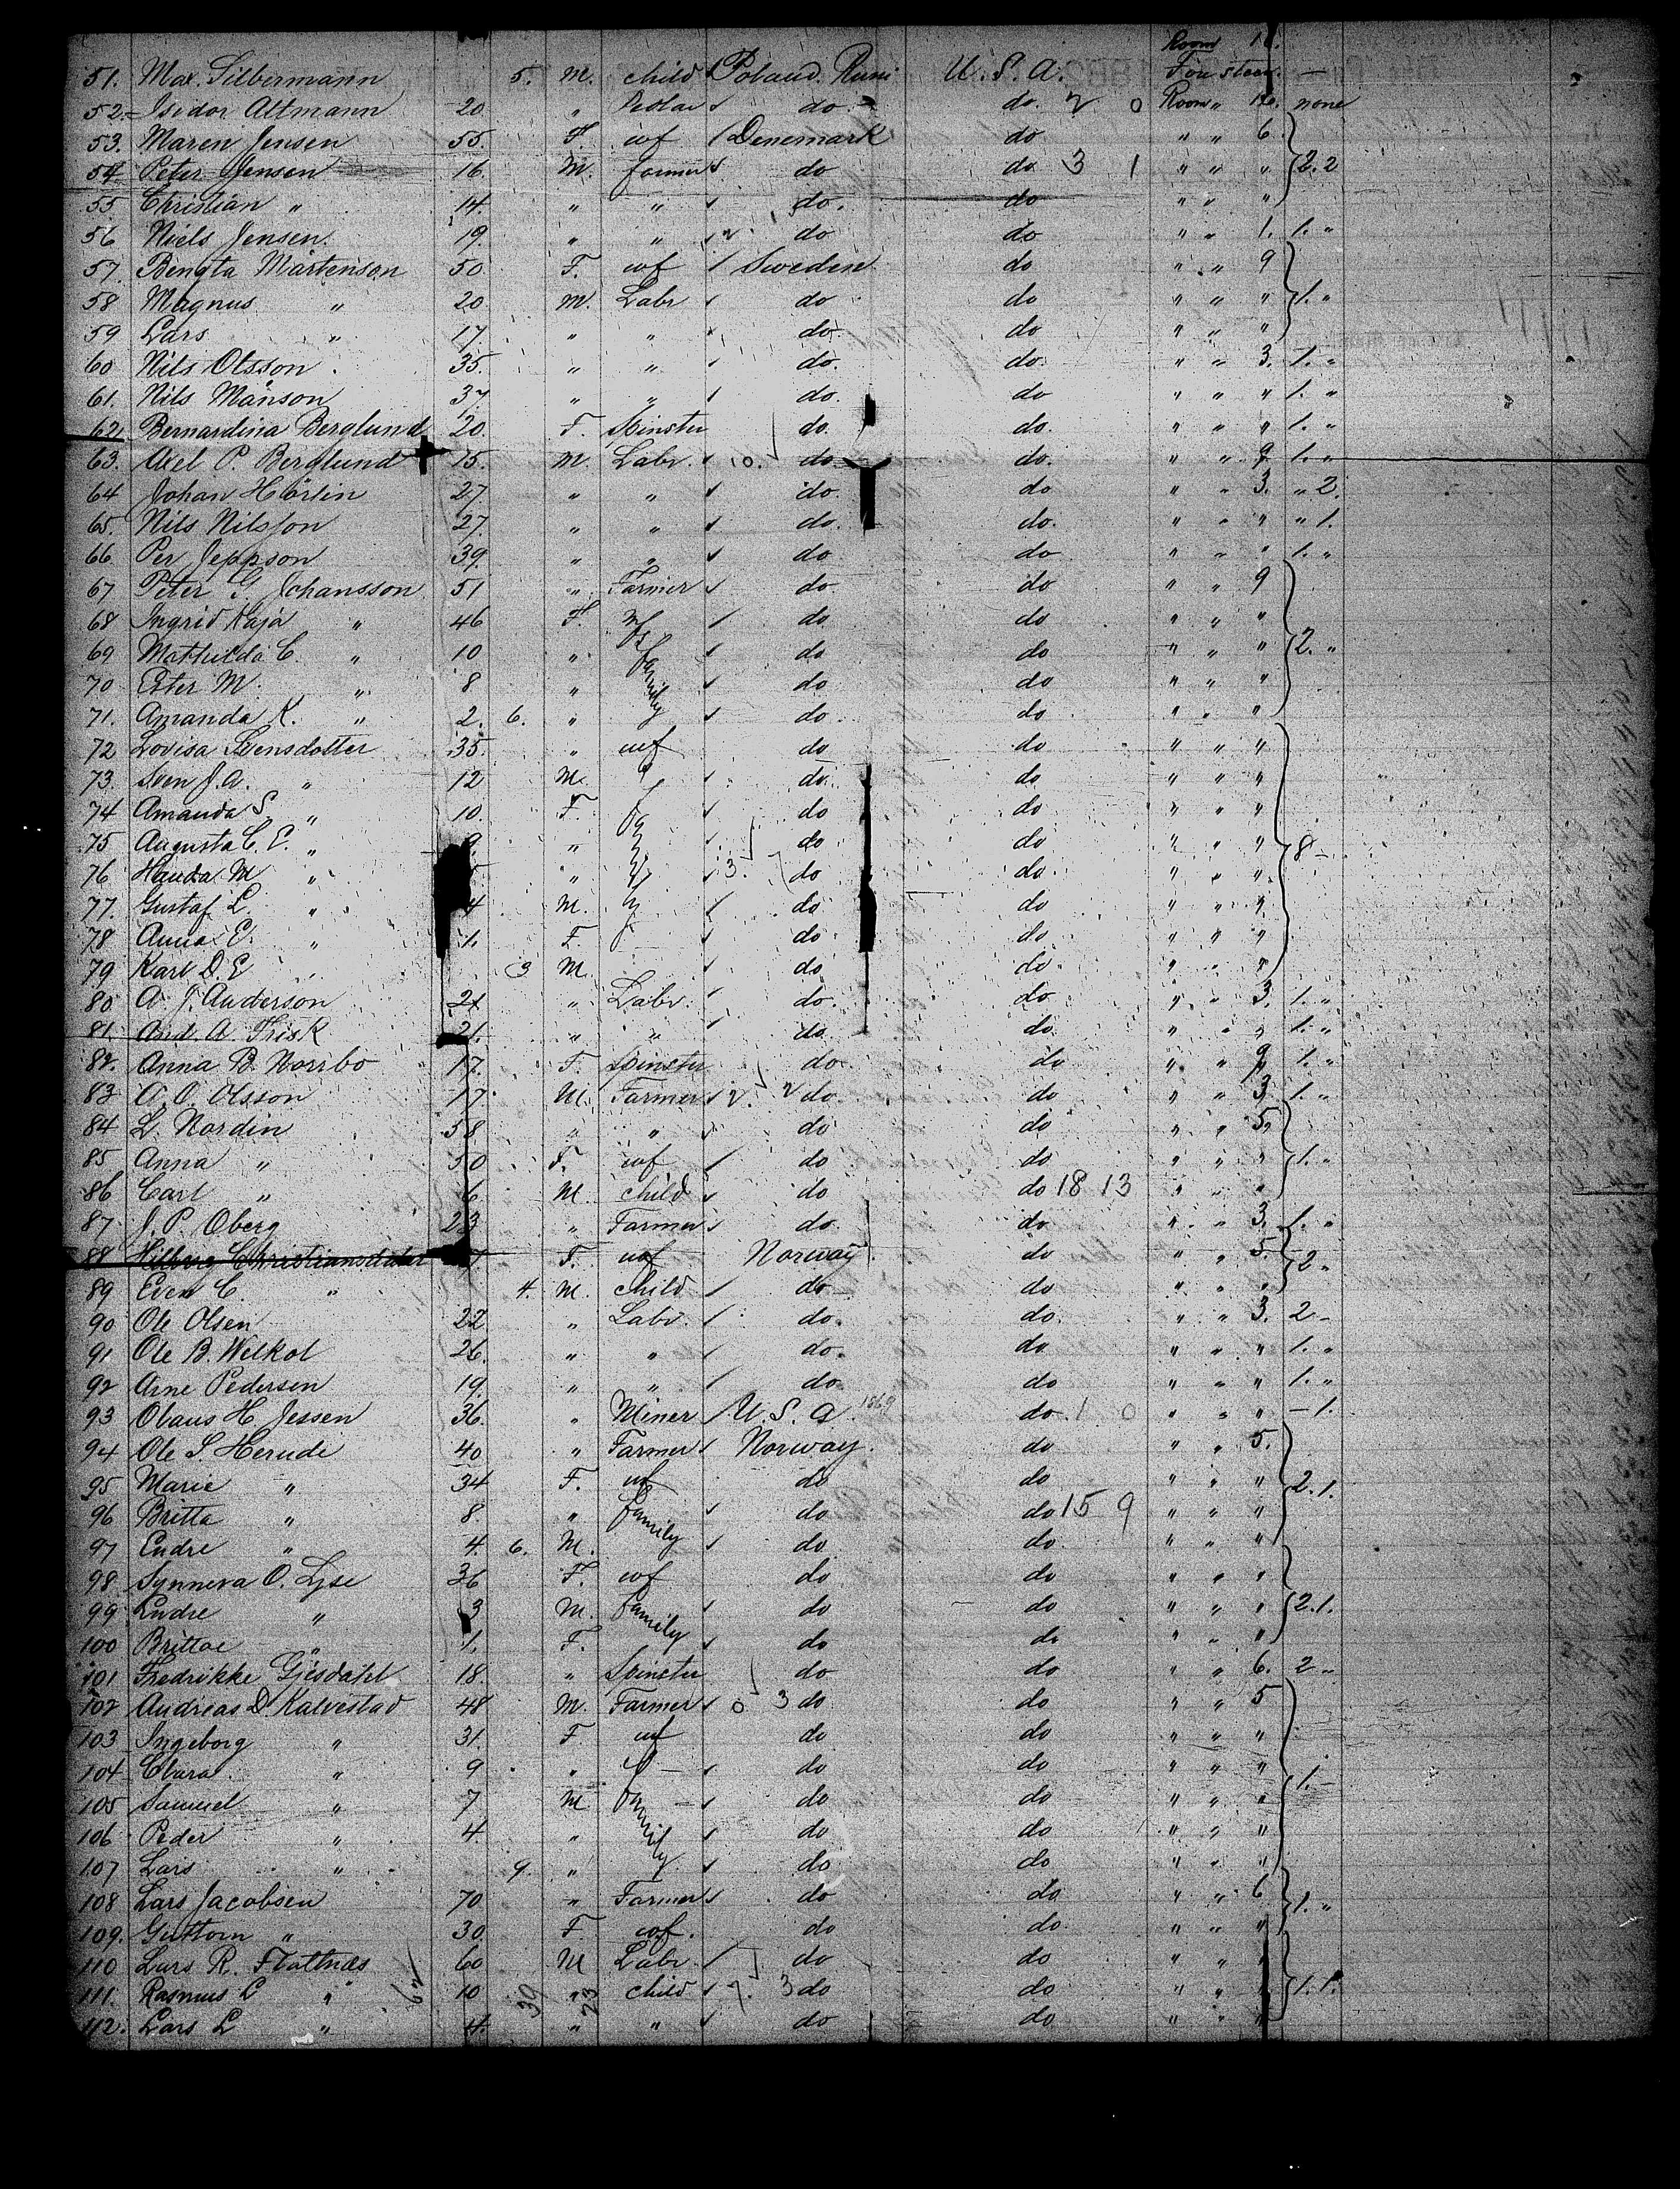 Room 12.
51. Max. Silbermann 5. M. child Poland. U. S. A. Fore steer. —
52. Isidor Altmann 20 " do. do. 2 0 Room " 12. none
53. Maren Jensen 55. F. wf Denemark do " " 6.
54 Peter Jensen 16. M. farmer do do 3 1 " " " 2.2
55 Christian " 14. " " do. do " " "
56 Niels Jensen. 19. " " 2. do do " " 1. 1. "
57. Bengta Mårtenson 50 F. wf Sweden do " " 9
58 Magnus " 20. M. Labr do do " " " 1. "
59 Lars " 17. " " do. do " " "
60 Nils Olsson. 35. " " do. do. " " 3. 1. "
61. Nils Månson 37. " " do. do " " " 1. "
62. Bernardina Berglund 20. F. Spinster do. do. " " " 1. "
63. Axel P. Berglund 15. M. Labr. 10. do do. " " 9 1. "
64 Johan Hörlin 27. " " do. do " " 3. " 2.
65. Nils Nilsson 27. " " do. do. " " " " 1.
66 Per Jeppson 39. " " do do " " " 1. "
67 Peter G. Johansson 51 " Farmer do. do " " 9
68 Ingrid Kaja " 46 F. wf do do " " "
69 Mathilda C. " 10 " family do do " " " 2. "
70 Ester M. " 8 " do do " " "
71. Amanda K. " 2. 6. " do. do " " "
72 Lovisa Svensdotter 35. " wf do do " " "
73. Sven J. A. " 12 M. do. do " " "
74 Amanda S " 10. F. do do " " "
75 Augusta C. E. " 9. " do do " " " 8 –
76 M " " 3. 7 do do. " " "
77. Gustaf L " 4 M. do do " " "
78 Anna E. " 1. F. do do " " "
79 Karl D. E " 3 M. do do " " "
80 A. J. Anderson 21 " Labr. do. do " " 3. 1. "
81. And. A. Frisk 21. " " do do. " " " 1. "
82. Anna B. Norribo 17. F. Spinster do. do " " 9 1. "
83 A. O. Olsson 17. M. Farmer 2. 2 do. do " " 3. 1. "
84 L. Nordin 58 " " do do " " 5.
85 Anna " 50 F. wf do do " " " 1. "
86 Carl " 6 M. child do do 18 13 " " "
87 J. P. Oberg 23 " Farmer do do " " 3. 1. "
88 Christiansdatter F. wf Norway do " " 5. 2 "
89 Even C. " 4. M. child do do " " "
90 Ole Olsen 22 " Labr. do. do. " " 3. 2 –
91 Ole B. Welkol 26. " " do. do " " " 1. "
92 Arne Pedersen 19. " " do do " " " 1. "
93 Olaus H. Jessen 36. " Miner U. S. A. 1869 do. 1 0 " " " – 1.
94 Ole S. Herudi 40 " Farmer Norway. do " " 5.
95 Marie " 34 F. wf do do " " " 2. 1.
96 Britta " 8. " family do do 15 9 " " "
97 Endre " 4. 6. M. do do. " " "
98 Synneva O. Lyse 36 F. wf do do " " "
99 Endre " 3 M. family do do " " " 2. 1.
100 Brittae " 1. F. do do " " "
101 Fredrikke Gjesdahl 18. " Spinster do do " " 6. 2 "
102 Andreas D. Kalvestad 48 M. Farmer 0 3 do do " " 5
103 Ingeborg " 31. F wf do do " " "
104 Clara " 9 " do do " " " 1. –
105 Samuel " 7 M family do do " " "
106 Peder " 4. " do do " " "
107 Lars " 9. " do do " " "
108 Lars Jacobsen 70 " Farmer do do " " 6 1. "
109. Guttorn " 30 F. wf. do do. " " "
110 Lars R. Flatnæs 60 M Labr. do do " " "
111. Rasmus L " 10 " child 7. 3 do do " " " 1. 1.
112. Lars L " 4. " " do do " " "
62 39 23